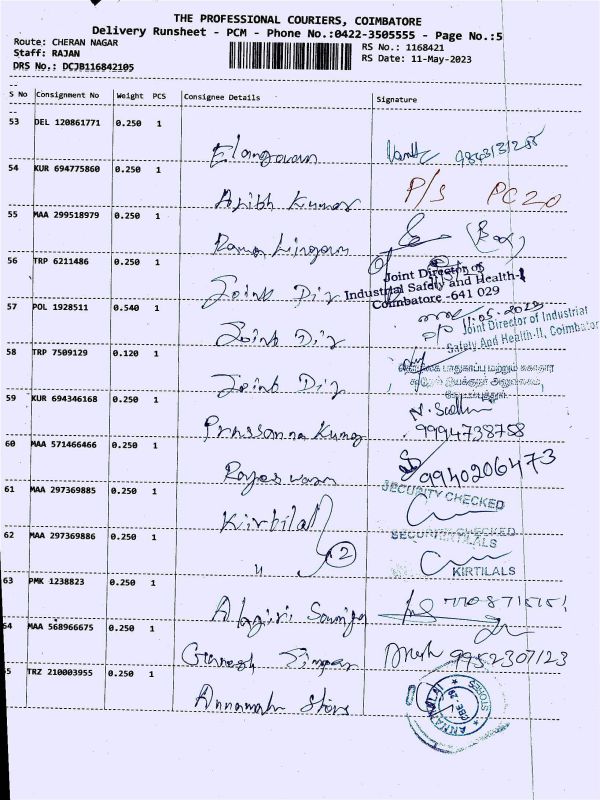 THE PROFESSIONAL COURIERS, COIMBATORE
Delivery Runsheet - PCM - Phone No.:0422-3505555 - Page No.:5
Route: CHERAN NAGAR
RS No.: 1168421
Staff: RAJAN
RS Date: 11-May-2023
DRS No.: DCJB116842105
S No Consignment No Weight PCS Consignee Details Signature
53 DEL 120861771 0.250 1
Elangovan
54 KUR 694775860 0.250 1
Kumar P/s PC20
55 MAA 299518979 0.250 1
56 TRP 6211486 0.250 1
Joint Dir
Joint Director of
Industrial Safety and Health-I
Coimbatore -641 029
57 POL 1928511 0.540 1
Joint Dir
11.05.2023
Joint Director of Industrial
Safety And Health-II, Coimbator
58 TRP 7509129 0.120 1
Joint Dir
59 KUR 694346168 0.250 1
Prassanna Kumar 9994738758
60 MAA 571466466 0.250 1
9940206473
61 MAA 297369885 0.250 1
Kirtilal
SECURITY CHECKED
62 MAA 297369886 0.250 1
" 2
SECURITY CHECKED
KIRTILALS
KIRTILALS
63 PMK 1238823 0.250 1
64 MAA 568966675 0.250 1
Ganesh 9952307123
5 TRZ 210003955 0.250 1
Annamalai Stores
ANNAMALAI STORES